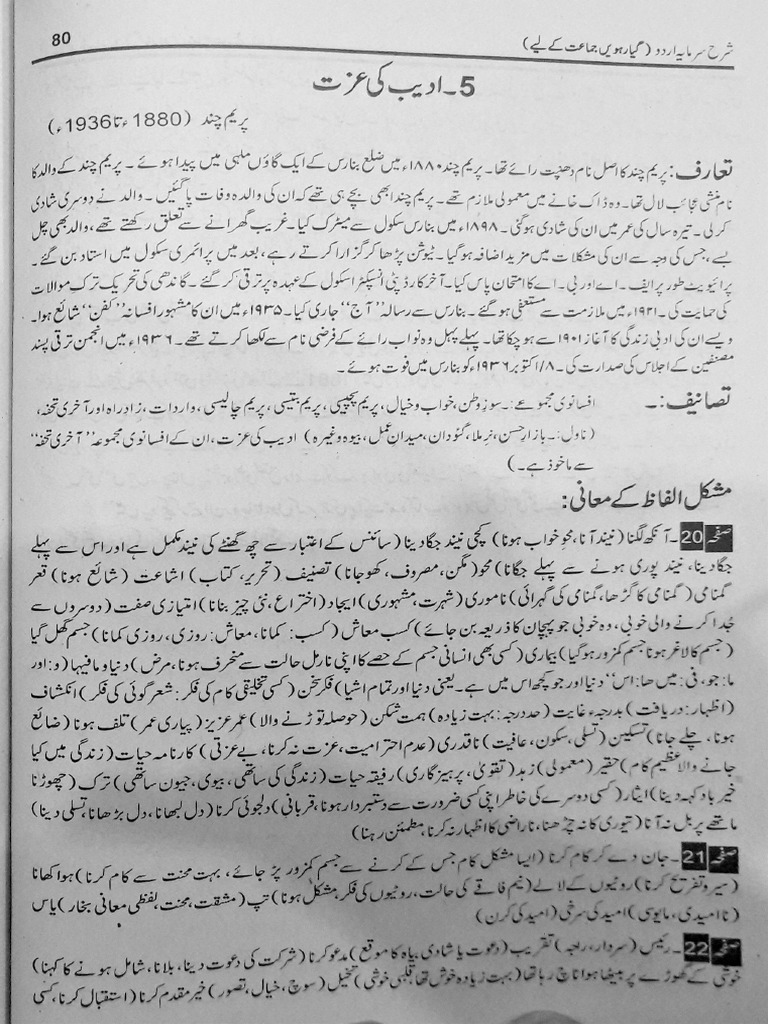 80
شرح سرمایہ اردو (گیارھویں جماعت کے لیے)
5۔ ادیب کی عزت
پریم چند (1880ء تا 1936ء)
تعارف: پریم چند کا اصل نام دھنپت رائے تھا۔ پریم چند ۱۸۸۰ء میں ضلع بنارس کے ایک گاؤں ملہی میں پیدا ہوئے۔ پریم چند کے والد کا
نام منشی عجائب لال تھا۔ وہ ڈاک خانے میں معمولی ملازم تھے۔ پریم چند ابھی بچے ہی تھے کہ ان کی والدہ وفات پا گئیں۔ والد نے دوسری شادی
کر لی۔ تیرہ سال کی عمر میں ان کی شادی ہو گئی۔ ۱۸۹۸ء میں بنارس سکول سے میٹرک کیا۔ غریب گھرانے سے تعلق رکھتے تھے، والد بھی چل
بسے، جس کی وجہ سے ان کی مشکلات میں مزید اضافہ ہو گیا۔ ٹیوشن پڑھا کر گزارا کرتے رہے، بعد میں پرائمری سکول میں استاد بن گئے۔
پرائیویٹ طور پر ایف۔ اے اور بی۔ اے کا امتحان پاس کیا۔ آخر کار ڈپٹی انسپکٹر اسکول کے عہدہ پر ترقی کر گئے۔ گاندھی کی تحریک ترک موالات
کی حمایت کی۔ ۱۹۲۱ء میں ملازمت سے مستعفی ہو گئے۔ بنارس سے رسالہ "آج" جاری کیا۔ ۱۹۳۵ء میں ان کا مشہور افسانہ "کفن" شائع ہوا۔
ویسے ان کی ادبی زندگی کا آغاز ۱۹۰۱ سے ہو چکا تھا۔ پہلے پہل وہ نواب رائے کے فرضی نام سے لکھا کرتے تھے۔ ۱۹۳۶ء میں انجمن ترقی پسند
مصنفین کے اجلاس کی صدارت کی۔ ۱۸/ اکتوبر ۱۹۳۶ء کو بنارس میں فوت ہوئے۔
تصانیف:۔ افسانوی مجموعے:۔ سوزِ وطن، خواب و خیال، پریم پچیسی، پریم بتیسی، پریم چالیسی، واردات، زادِ راہ اور آخری تحفہ،
(ناول:۔ بازارِ حسن، نرملا، گئودان، میدانِ عمل، بیوہ وغیرہ) ادیب کی عزت، ان کے افسانوی مجموعہ "آخری تحفہ"
سے ماخوذ ہے۔)
مشکل الفاظ کے معانی:
صفحہ 20۔ آنکھ لگنا (نیند آنا، محوِ خواب ہونا) کچی نیند جگا دینا (سائنس کے اعتبار سے چھ گھنٹے کی نیند مکمل ہے اور اس سے پہلے
جگا دینا، نیند پوری ہونے سے پہلے جگانا) محو (مگن، مصروف، کھو جانا) تصنیف (تحریر، کتاب) اشاعت (شائع ہونا) قعر
گمنامی (گمنامی کا گڑھا، گمنامی کی گہرائی) ناموری (شہرت، مشہوری) ایجاد (اختراع، نئی چیز بنانا) امتیازی صفت (دوسروں سے
جُدا کرنے والی خوبی، وہ خوبی جو پہچان کا ذریعہ بن جائے) کسب معاش (کسب: کمانا، معاش: روزی، روزی کمانا) جسم گھل گیا
(جسم کا لاغر ہونا جسم کمزور ہو گیا) بیماری (کسی بھی انسانی جسم کے حصے کا اپنی نارمل حالت سے منحرف ہونا، مرض) دنیا و مافیہا (و: اور
ما: جو، فی: میں ھا: اس" دنیا اور جو کچھ اس میں ہے۔ یعنی دنیا اور تمام اشیا) فکرِ سخن (کسی تخلیقی کام کی فکر: شعر گوئی کی فکر) انکشاف
(اظہار: دریافت) بدرجہء غایت (حد درجہ: بہت زیادہ) ہمت شکن (حوصلہ توڑنے والا) عمر عزیز (پیاری عمر) تلف ہونا (ضائع
ہونا، چلے جانا) تسکین (تسلی، سکون، عافیت) ناقدری (عدم احترامیت، عزت نہ کرنا، بے عزتی) کارنامہ حیات (زندگی میں کیا
جانے والا عظیم کام) حقیر (معمولی) زہد (تقویٰ، پرہیز گاری) رفیقہ حیات (زندگی کی ساتھی، بیوی، جیون ساتھی) ترک (چھوڑنا
خیر باد کہہ دینا) ایثار (کسی دوسرے کی خاطر اپنی کسی ضرورت سے دستبردار ہونا، قربانی) دلجوئی کرنا (دل لبھانا، دل بڑھانا، تسلی دینا)
ماتھے پر بل نہ آنا (تیوری کا نہ چڑھنا، ناراضی کا اظہار نہ کرنا، مطمئن رہنا)
صفحہ 21۔ جان دے کر کام کرنا (ایسا مشکل کام جس کے کرنے سے جسم کمزور پڑ جائے، بہت محنت سے کام کرنا) ہوا کھانا
(سیر و تفریح کرنا) روٹیوں کے لالے (نیم فاقے کی حالت، روٹیوں کی فکر، مشکل ہونا) تپ (مشقت، محنت، لفظی معانی بخار) یاس
(نا امیدی، مایوسی) امید کی سرخی (امید کی کرن)
صفحہ 22۔ رئیس (سردار، راجہ) تقریب (دعوت یا شادی، بیاہ کا موقع) مدعو کرنا (شرکت کی دعوت دینا، بلانا، شامل ہونے کا کہنا)
خوشی کے گھوڑے پر بیٹھا ہوا ناچ رہا تھا (بہت زیادہ خوش تھا، قلبی خوشی) تخیل (سوچ، خیال، تصور) خیر مقدم کرنا (استقبال کرنا، کسی